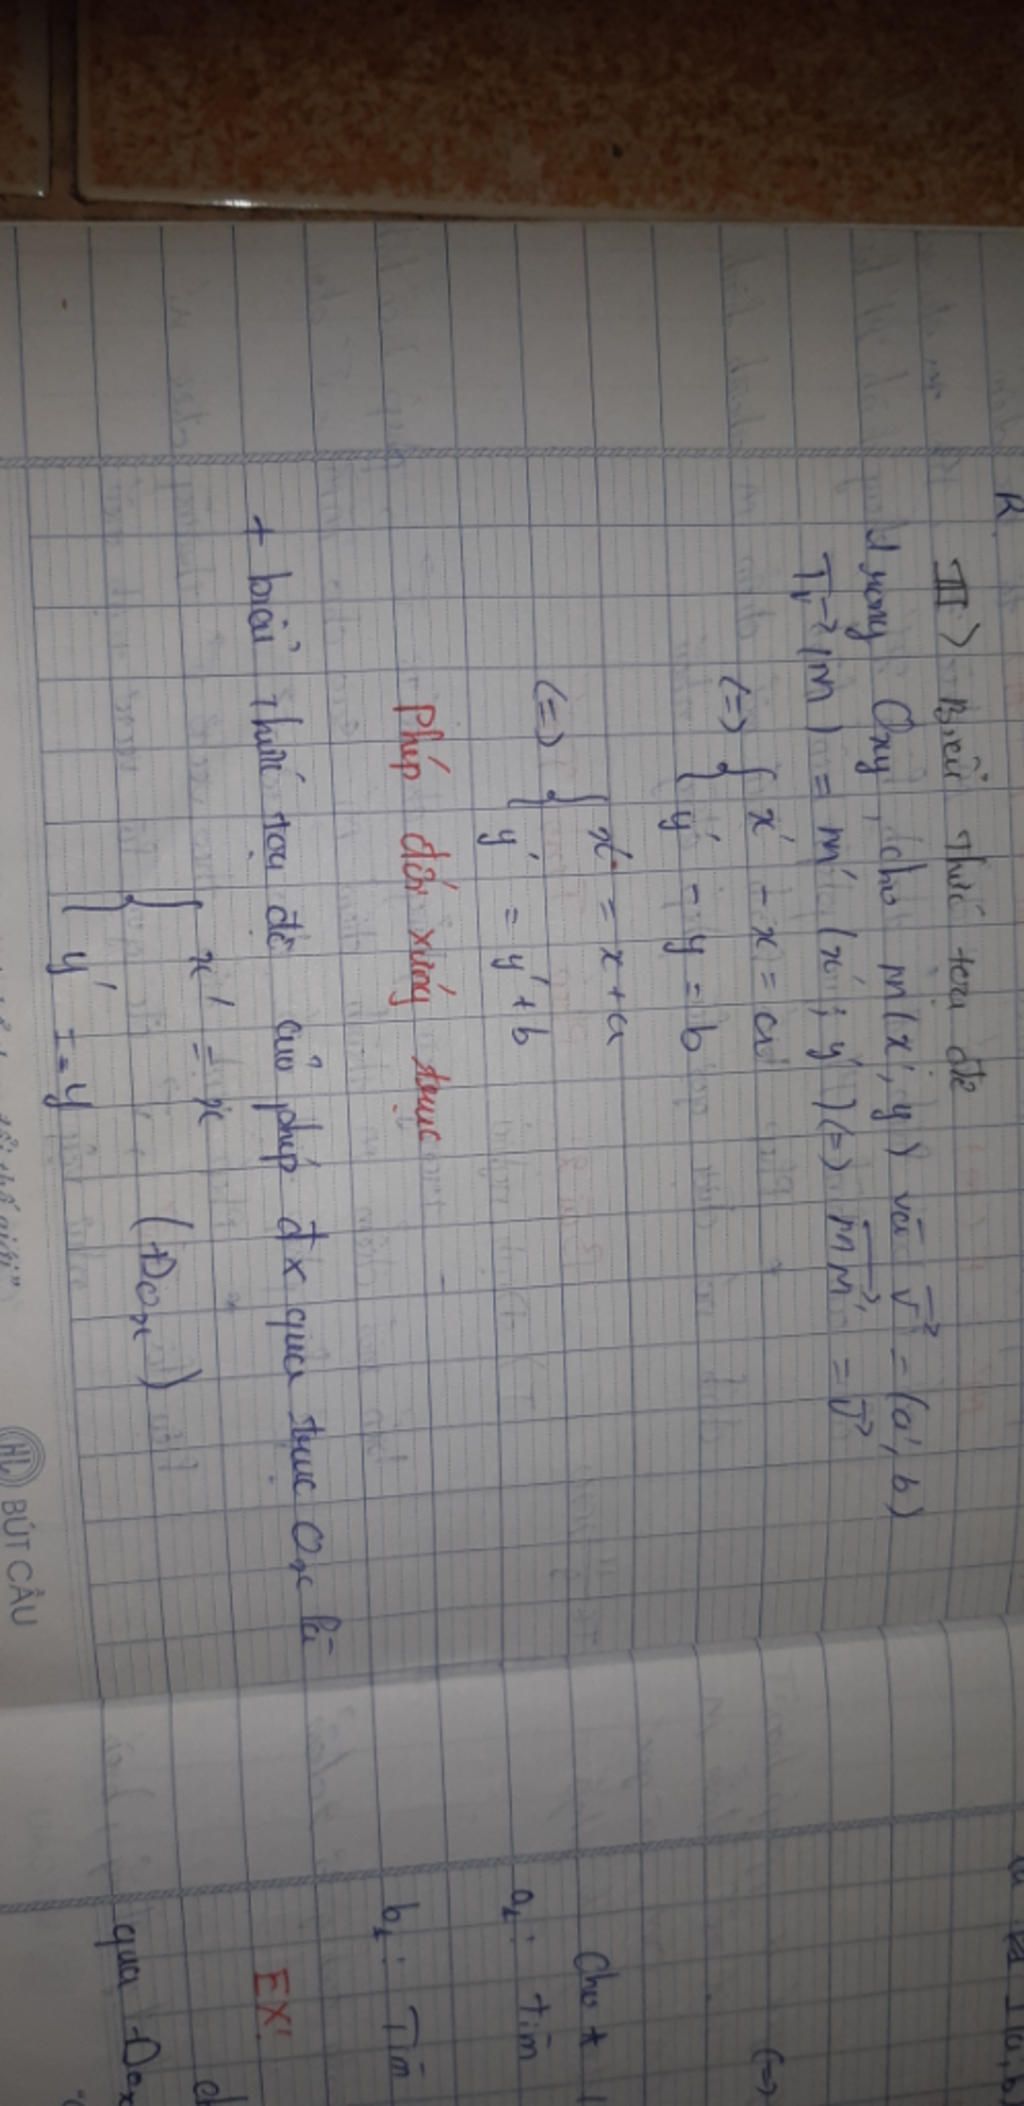 II> Biểu thức tọa độ
Trong Oxy, cho M(x, y) và v⃗ = (a, b)
Tv⃗ (M) = M' (x'; y') (=) MM'⃗ = v⃗
(=) { x' - x = a
{ y' - y = b
(=) { x' = x + a
{ y' = y' + b
Phép đối xứng trục
+ biểu thức tọa độ của phép đx qua trục Ox là
{ x' = x
{ y' = -y
(Đox)
BÚT CÂU
(=)
Cho
a, : tìm
b, : Tìm
EX:
qua Đox